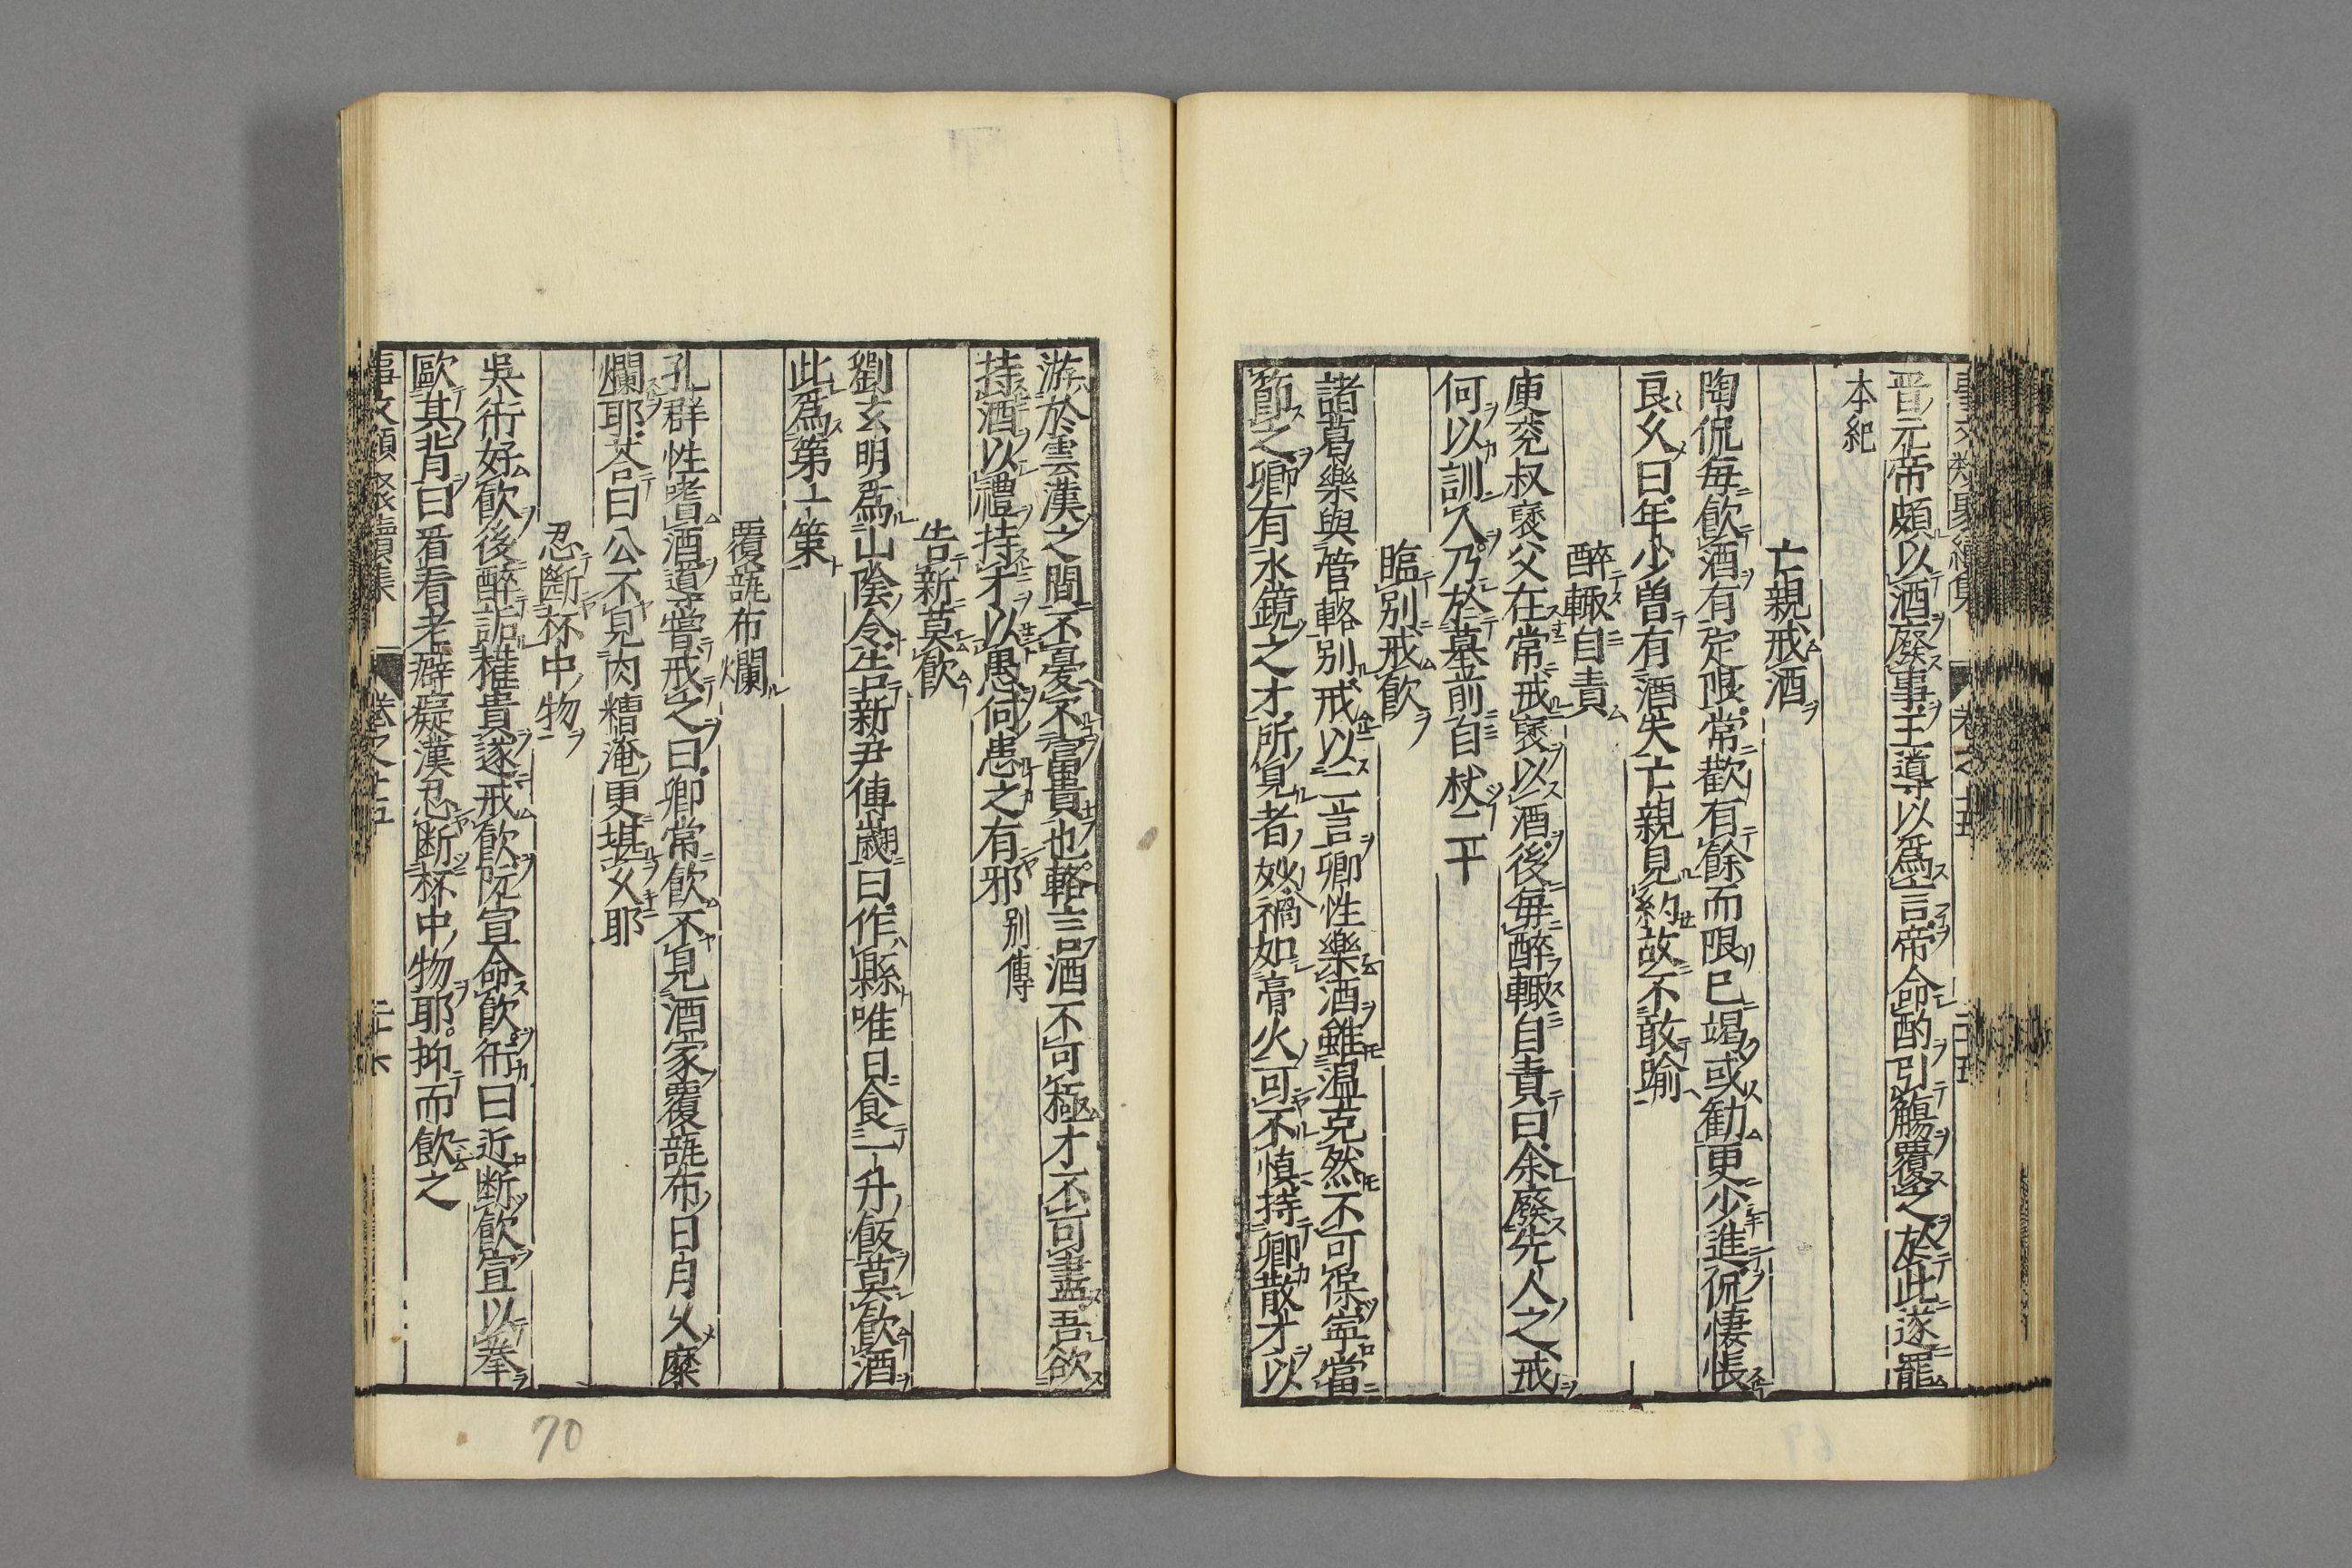 晋元帝頗以酒廢事王導以爲言帝命酌引觴覆之於此遂罷
本紀
亡親戒酒
陶侃毎飲酒有定限常歡有餘而限已竭或勧更少進侃悽悵
良久曰年少曽有酒失亡親見約故不敢踰
醉輙自責
庾兖叔褒父在常戒褒以酒後毎醉輙自責曰余廢先人之戒
何以訓人乃於墓前自杖二十
臨别戒飲
諸葛樂與管輅别戒以二言卿性樂酒雖温克然不可保寕當
節之卿有水鏡之才所見者妙禍如膏火可不慎持卿散才以
游於雲漢之間不憂不富貴也輅言酒不可極才不可盡吾欲
持酒以禮持才以愚何患之有邪 别傳
告新莫飲
劉玄明爲山陰令告新尹傅翽曰作縣唯日食一升飯莫飲酒
此爲第一策
覆瓿布爛
孔群性嗜酒導嘗戒之曰卿常飲不見酒家覆瓿布日月久糜
爛耶荅曰公不見肉糟淹更堪久耶
忍斷杯中物
吳衎好飲後醉詬權貴遂戒飲阮宣命飲衎曰近断飲宣以拳
歐其背曰看看老癖癡漢忍断杯中物耶抑而飲之
事文類聚續集 卷之十五 二十六
70